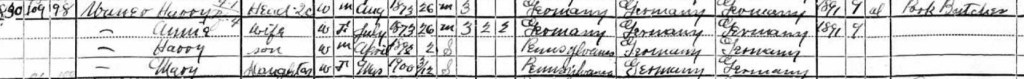 90 109 98 Harry Head W M Aug 1873 26 M Germany Germany Germany 1891 9 al Pork Butcher
— Annie Wife W F July 1873 26 M 3 2 2 Germany Germany Germany 1891 9
— Harry Son W M April 2 S Pennsylvania Germany Germany
— Mary Daughter W F 1900 /12 S Pennsylvania Germany Germany